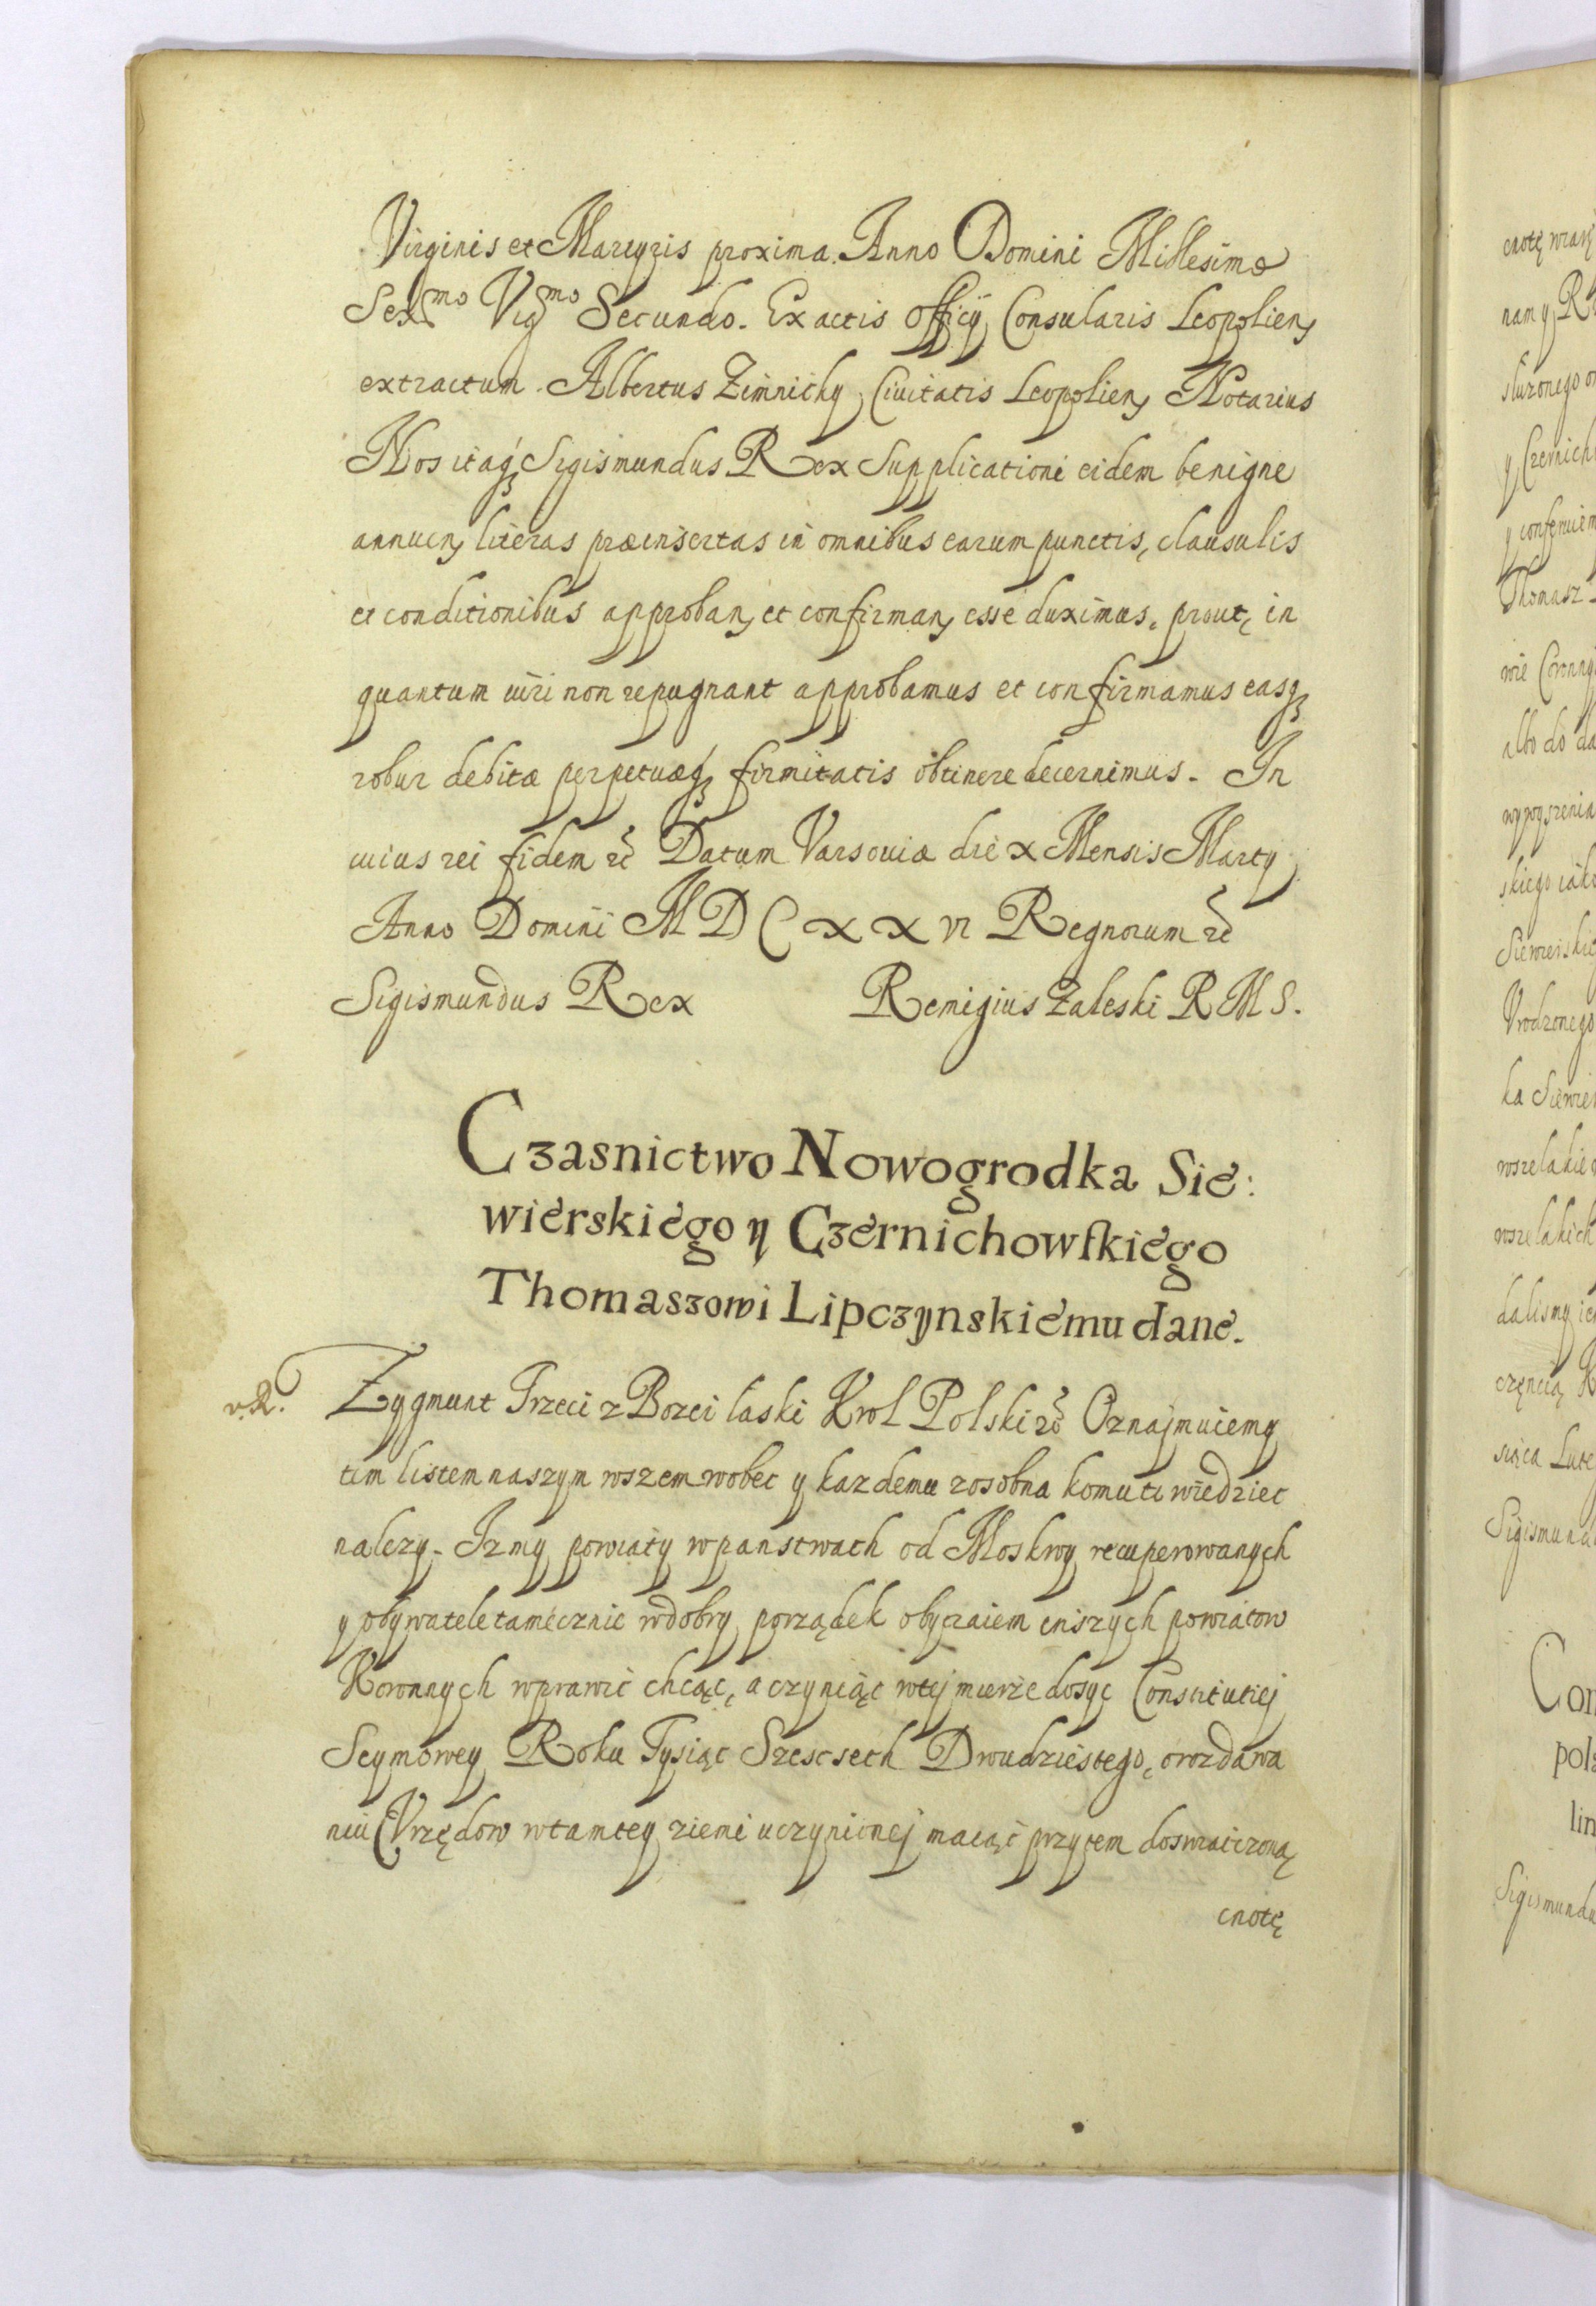 Virginis et Martyris proxima. Anno Domini Millesimo
Sex^mo Vig^mo Secundo. Ex actis officij Consularis Leopolien,
extractum. Albertus Zimnicky Ciuitatis Leopolien, Notarius
Nos itaq Sigismundus Rex Supplicationi eidem benigne
annuen, literas præinsertas in omnibus earum punctis, clausulis
et conditionibus approban, et confirman, esse duximus, prout, in
quantum iuri non repugnant approbamus et confirmamus easq
robur debitæ perpetuæq firmitatis obtinere decernimus. In
cuius rei fidem etc Datum Varsouiæ die X Mensis Marty
Anno Domini M D C X X VI Regnorum etc
Sigismundus Rex Remigius Zaleski R M S.
Czasnictwo Nowogrodka Sie:
wierskiego y Czernichowskiego
Thomaszowi Lipczynskiemu dane.
Zygmunt Trzeci z Bozei łaski Krol Polski etc Oznajmuiemy
tim listem naszym wszem wobec y kazdemu zosobna komu to wiedziec
nalezy. Iz my powiaty w panstwach od Moskwy recuperowanych
y obywatele tamecznie w dobry porządek obyczaiem inszych powiatow
Koronnych wprawic chcąc, a czyniąc wtej mierze dosyc Constitutiej
Seymowey Roku Tysiąc Szescsech Dwudziestego, o rozdawa
niu Vrzędow w tamtey ziemi uczynionej maiąc przytem doswiatczoną
cnotę